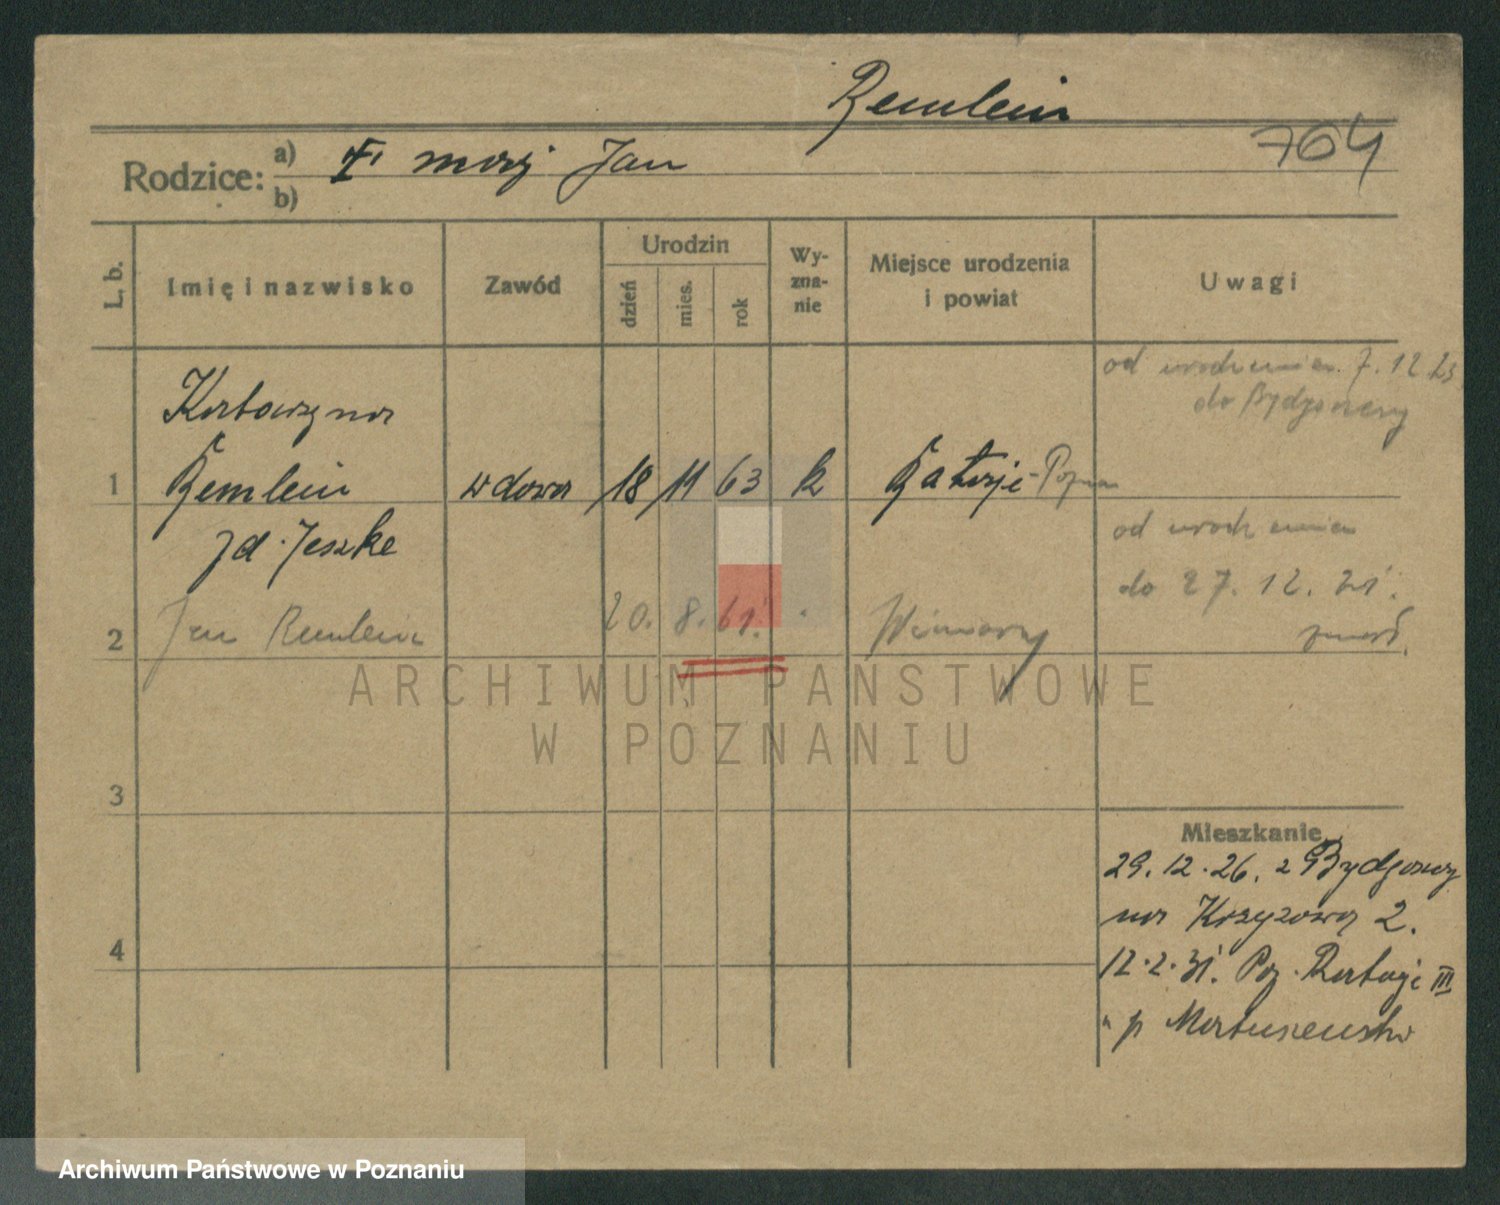 Remlein
764
Rodzice: a) I mąż Jan
b)
L. b.
Imię i nazwisko
Zawód
Urodzin
dzień
mies.
rok
Wy-
zna-
nie
Miejsce urodzenia
i powiat
Uwagi
Katarzyna
1 Remlein wdowa 18 11 63 k Rataje-Poznań
zd. Jeszke
od urodzenia 7. 12. 23
do Bydgoszczy
2 Jan Remlein 20. 8. 61. Winiary
od urodzenia
do 27. 12. 21.
zmarł.
3
4
Mieszkanie
29. 12. 26. z Bydgoszczy
na Krzyżową 2.
12. 2. 31. Poz. Rataje III
p Matuszewski
ARCHIWUM PAŃSTWOWE
W POZNANIU
Archiwum Państwowe w Poznaniu